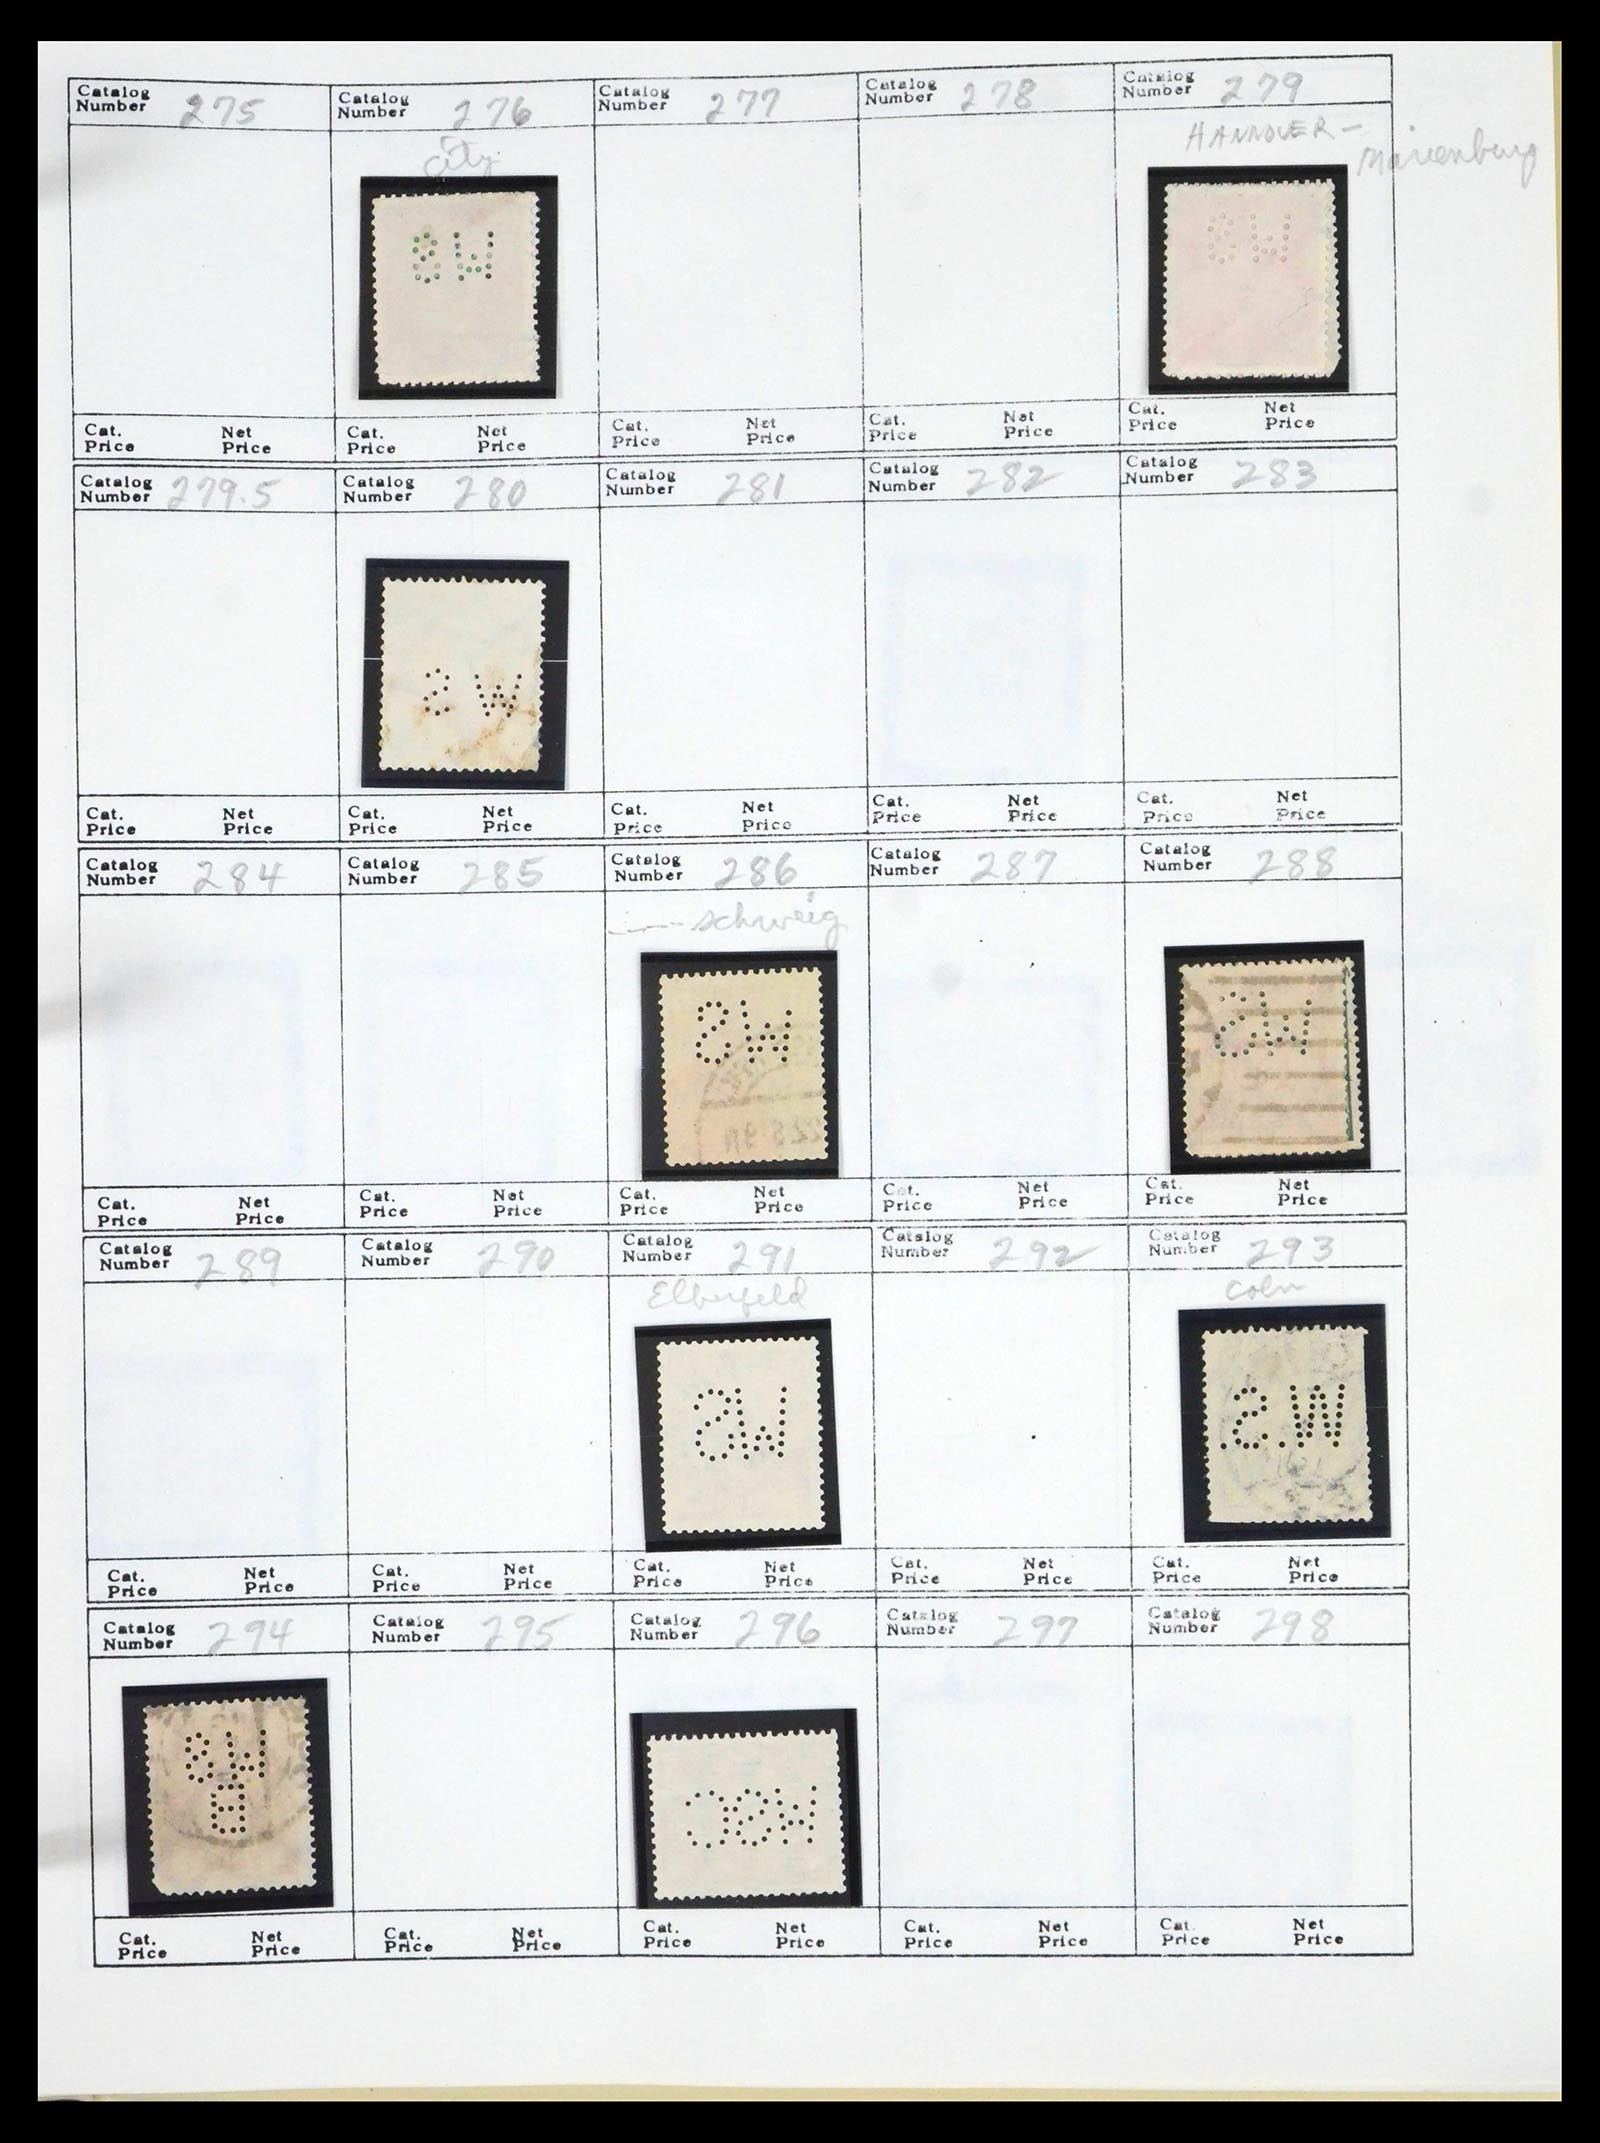 Catalog Number 275 Catalog Number 276 Catalog Number 277 Catalog Number 278 Catalog Number 279
City HANNOVER - Marienburg
SW SW
Cat. Price Net Price Cat. Price Net Price Cat. Price Net Price Cat. Price Net Price Cat. Price Net Price
Catalog Number 279.5 Catalog Number 280 Catalog Number 281 Catalog Number 282 Catalog Number 283
S W
Cat. Price Net Price Cat. Price Net Price Cat. Price Net Price Cat. Price Net Price Cat. Price Net Price
Catalog Number 284 Catalog Number 285 Catalog Number 286 Catalog Number 287 Catalog Number 288
schweig
SW SW
Cat. Price Net Price Cat. Price Net Price Cat. Price Net Price Cat. Price Net Price Cat. Price Net Price
Catalog Number 289 Catalog Number 290 Catalog Number 291 Catalog Number 292 Catalog Number 293
Elberfeld Coln
SW .S.W
Cat. Price Net Price Cat. Price Net Price Cat. Price Net Price Cat. Price Net Price Cat. Price Net Price
Catalog Number 294 Catalog Number 295 Catalog Number 296 Catalog Number 297 Catalog Number 298
SW
B
Cat. Price Net Price Cat. Price Net Price Cat. Price Net Price Cat. Price Net Price Cat. Price Net Price